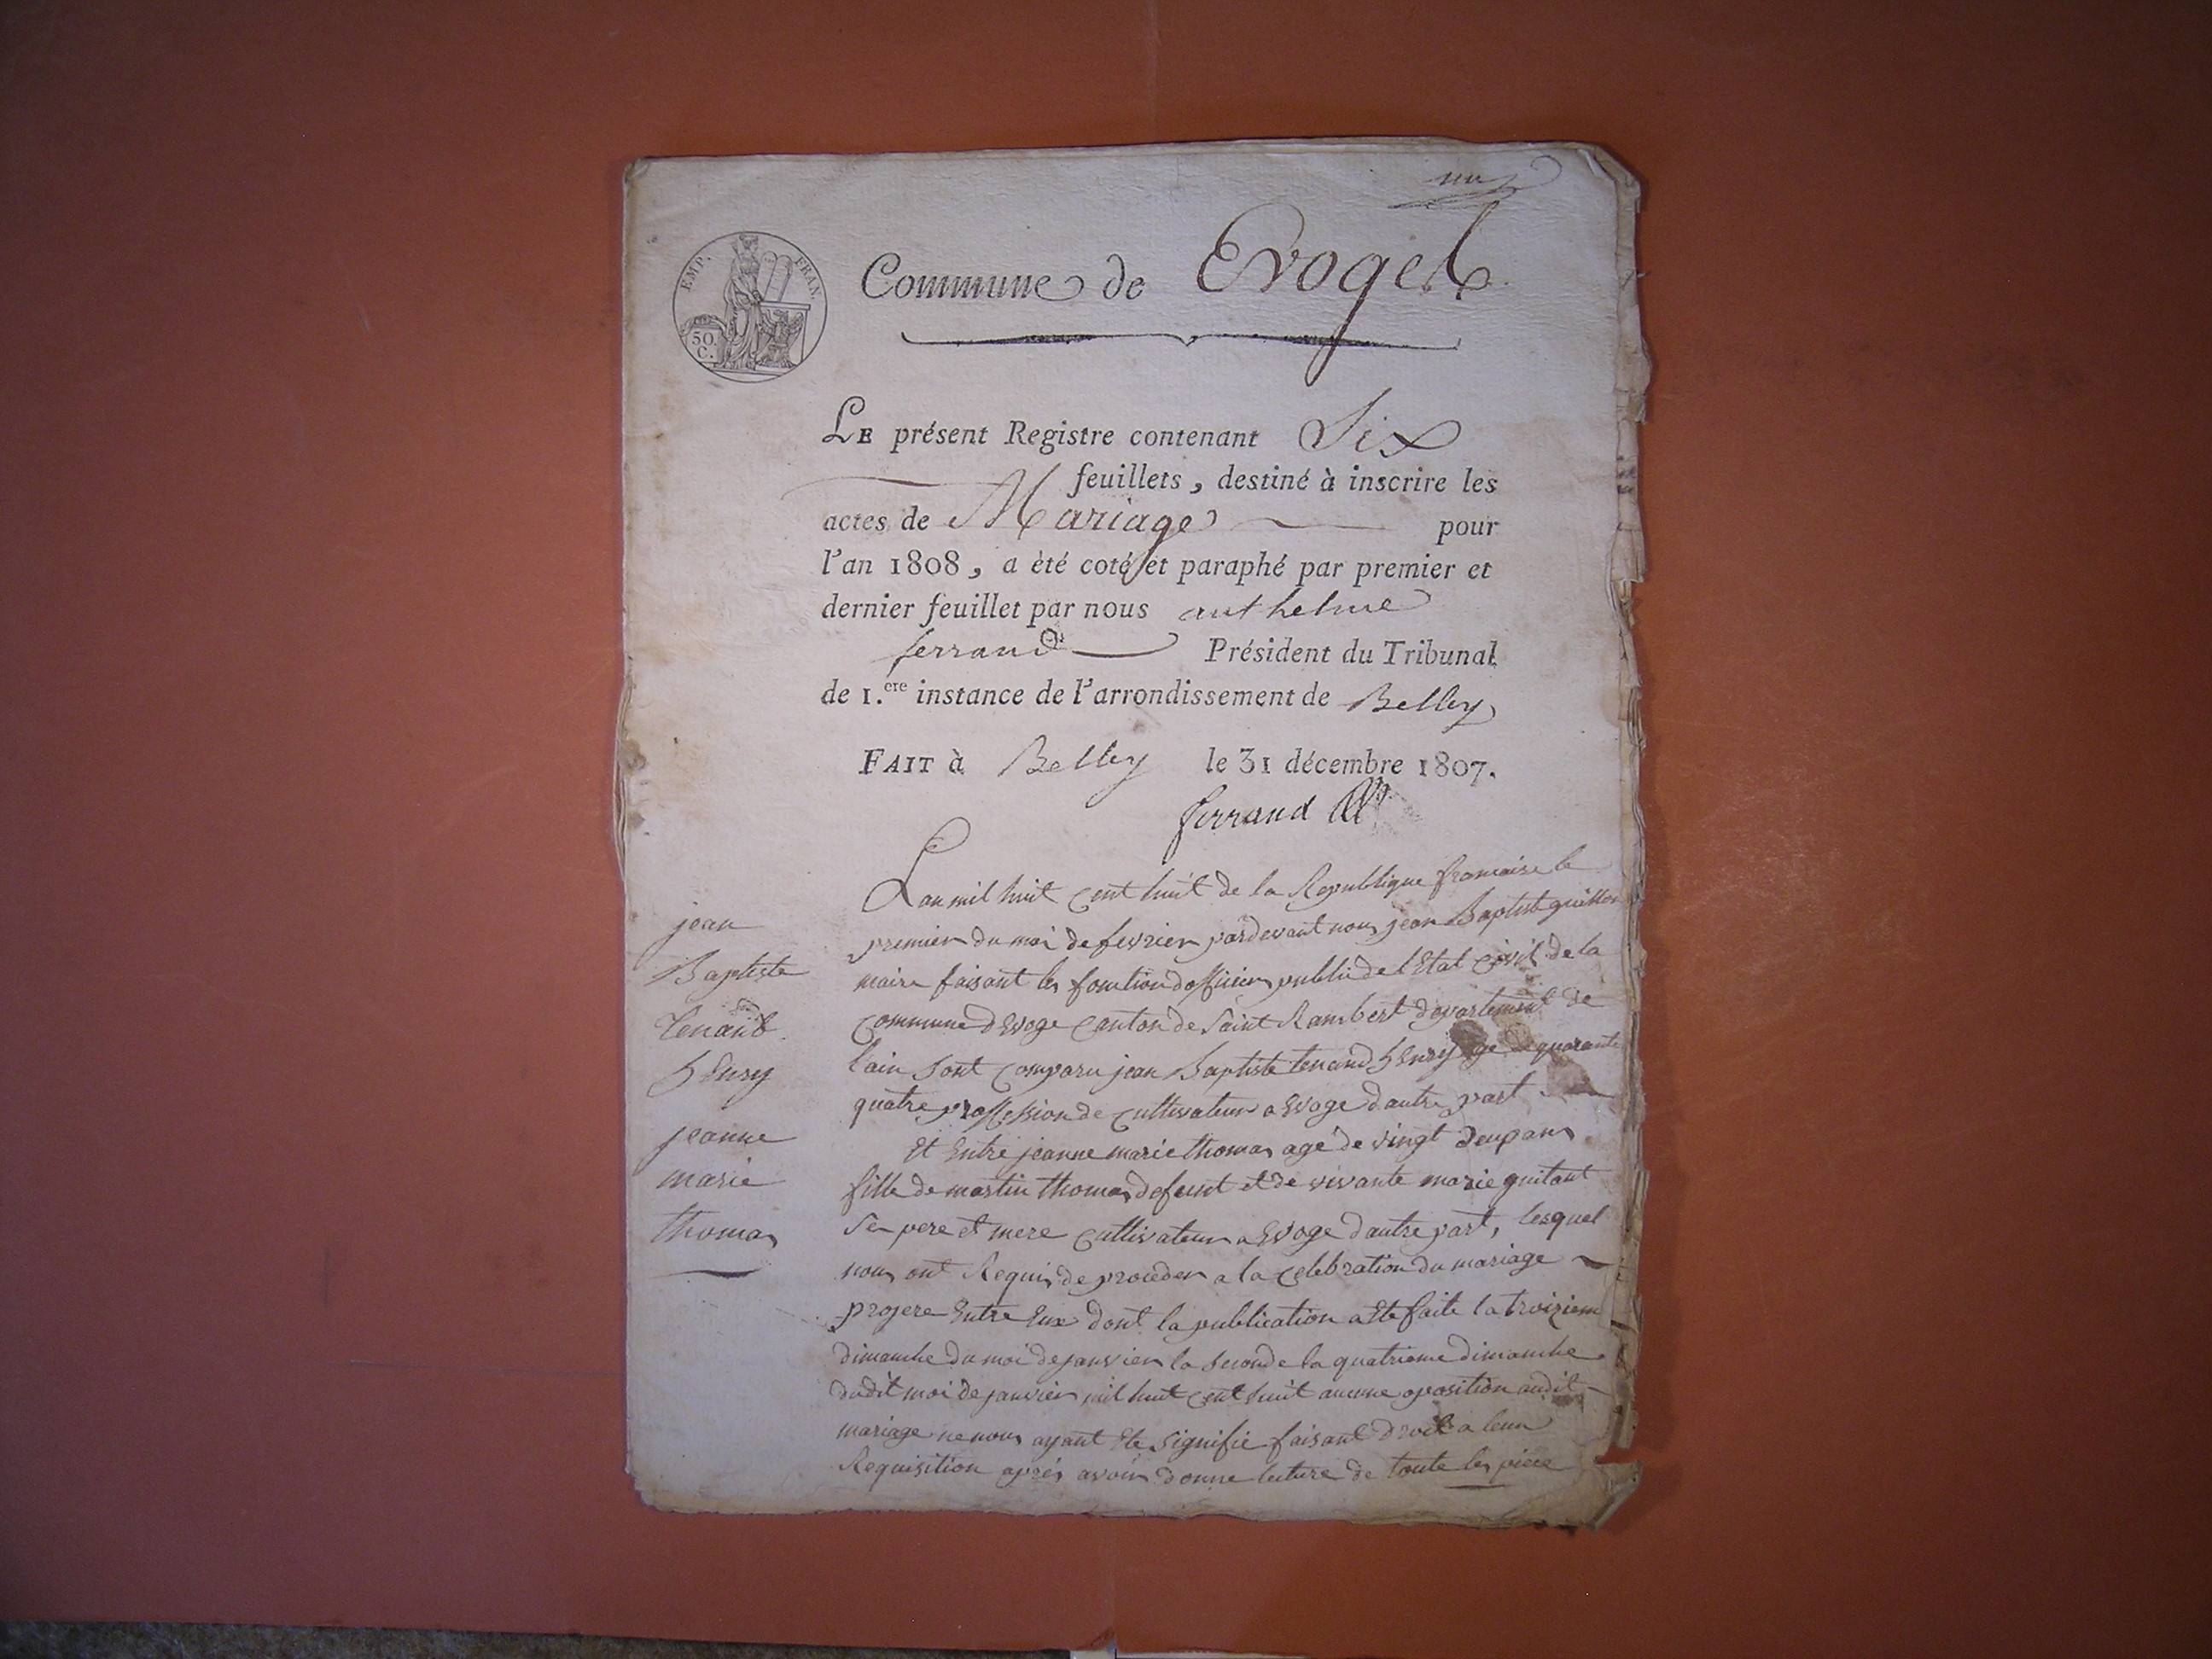 un
EMP. FRAN.
50.
C.
Commune de Evoges
LE présent Registre contenant Six
feuillets, destiné à inscrire les
actes de Mariage pour
l'an 1808, a èté coté et paraphé par premier et
dernier feuillet par nous anthelme
ferrand Président du Tribunal
de 1.ere instance de l'arrondissement de Belley
FAIT à Belley le 31 décembre 1807.
ferrand
Lan mil huit cent huit de la Republique francaise le
premier du moi de fevrier pardevant nous jean Baptist guillon
maire faisant les fontion dofficier public de l Etat Civil de la
commune d Evoge canton de Saint Rambert departement de
lain sont comparu jean Baptiste tenand h Enry age de quarante
quatre proffession de cultivateur a Evoge dautre part
Et Entre jeanne marie thomas agé de vingt deux ans
fille de martin thomas defunt et de vivante marie guitant
Ses pere et mere cultivateur a Evoge dautre part, lesquel
nous ont Requis de proceder a la celebration du mariage
projere Entre Eux dont la publication a Ete faite la troizieme
dimanche du moi de janvier la seconde la quatrieme dimanche
dudit moi de janvier mil huit cent huit aucune oposition audit
mariage ne nous ayant Ete signifie faisant droit a leur
Requisition aprés avoir donne lecture de toute les piece
jean
Baptiste
tenand
h Enry
jeanne
marie
thomas